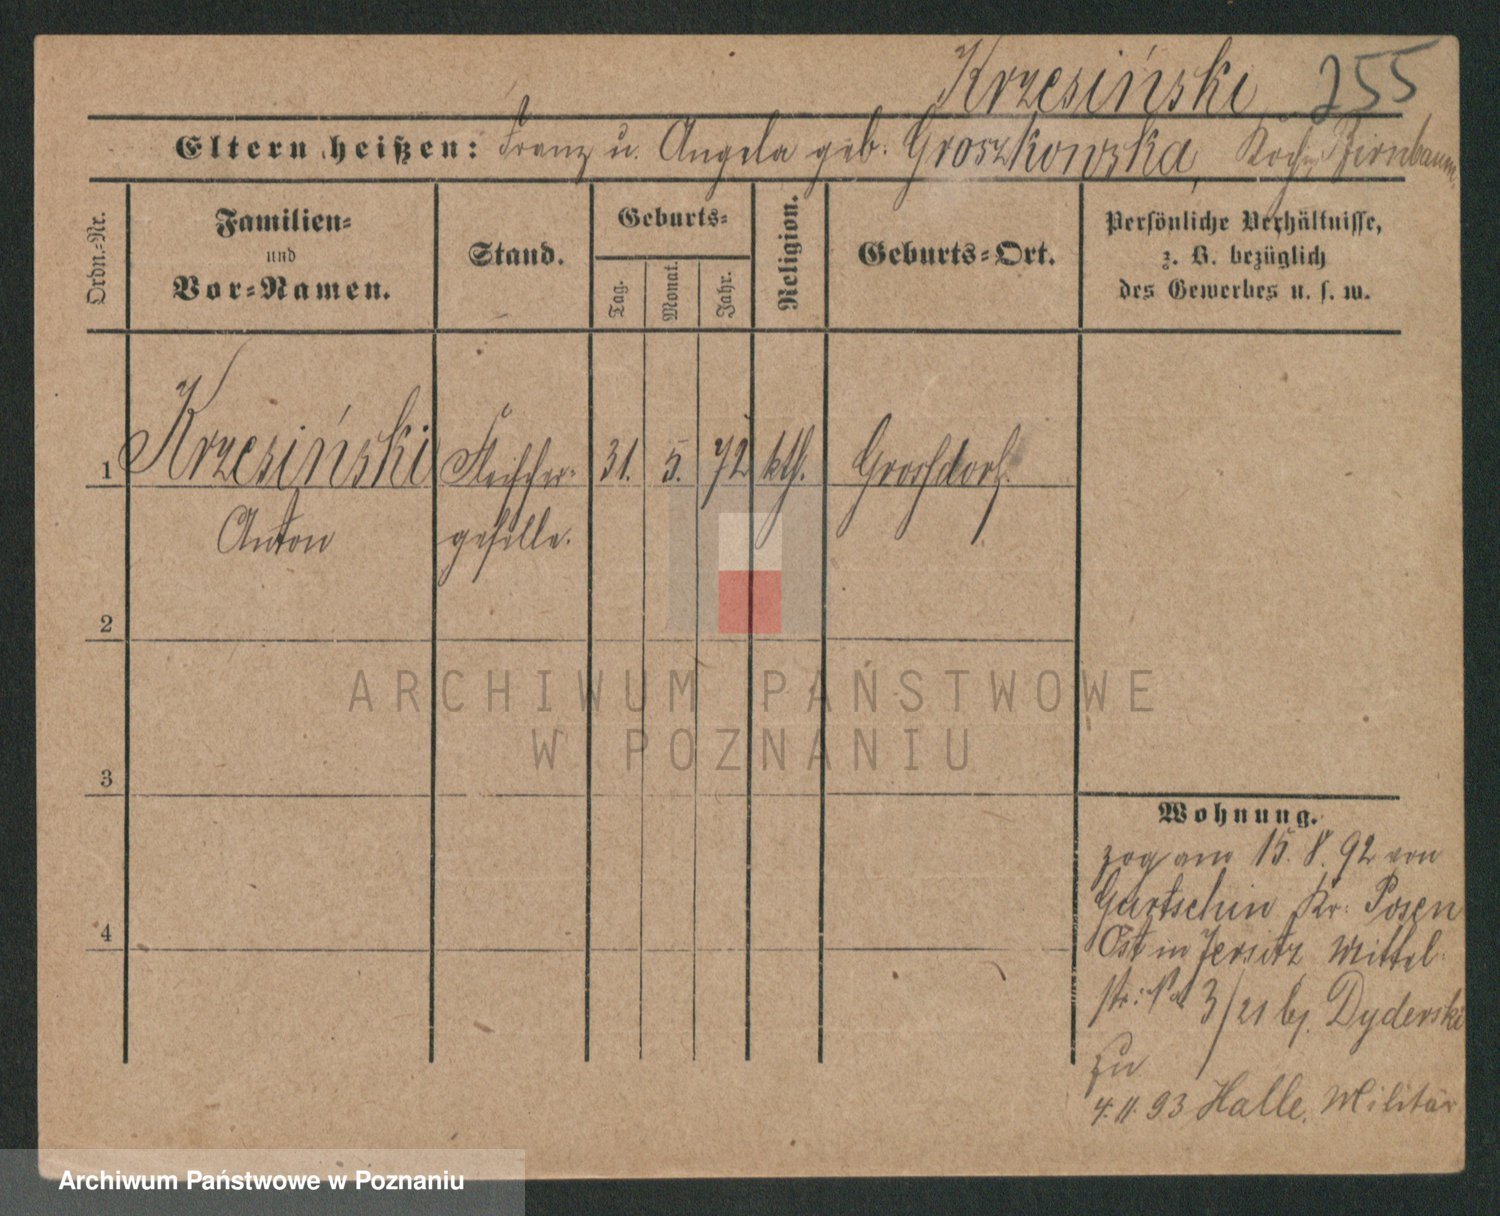 Krzesiński 255
Eltern heißen: Franz u. Angela geb. Groszkowska, Birnbaum.
Ordn.-Nr.
Familien-
und
Vor-Namen.
Stand.
Geburts-
Tag.
Monat.
Jahr.
Religion.
Geburts-Ort.
Persönliche Verhältnisse,
z. B. bezüglich
des Gewerbes u. s. w.
1 Krzesiński Fleischer- 31. 5. 72 kth. Grossdorf.
Anton geselle.
2
ARCHIWUM PAŃSTWOWE
W POZNANIU
3
Wohnung.
zog am 15. 8. 92 von
Gurtschin Kr: Posen
Ost in Jersitz Mittel-
str: No 3/21 bj. Dyderski
zu
4. 11. 93 Halle. Militär
4
Archiwum Państwowe w Poznaniu